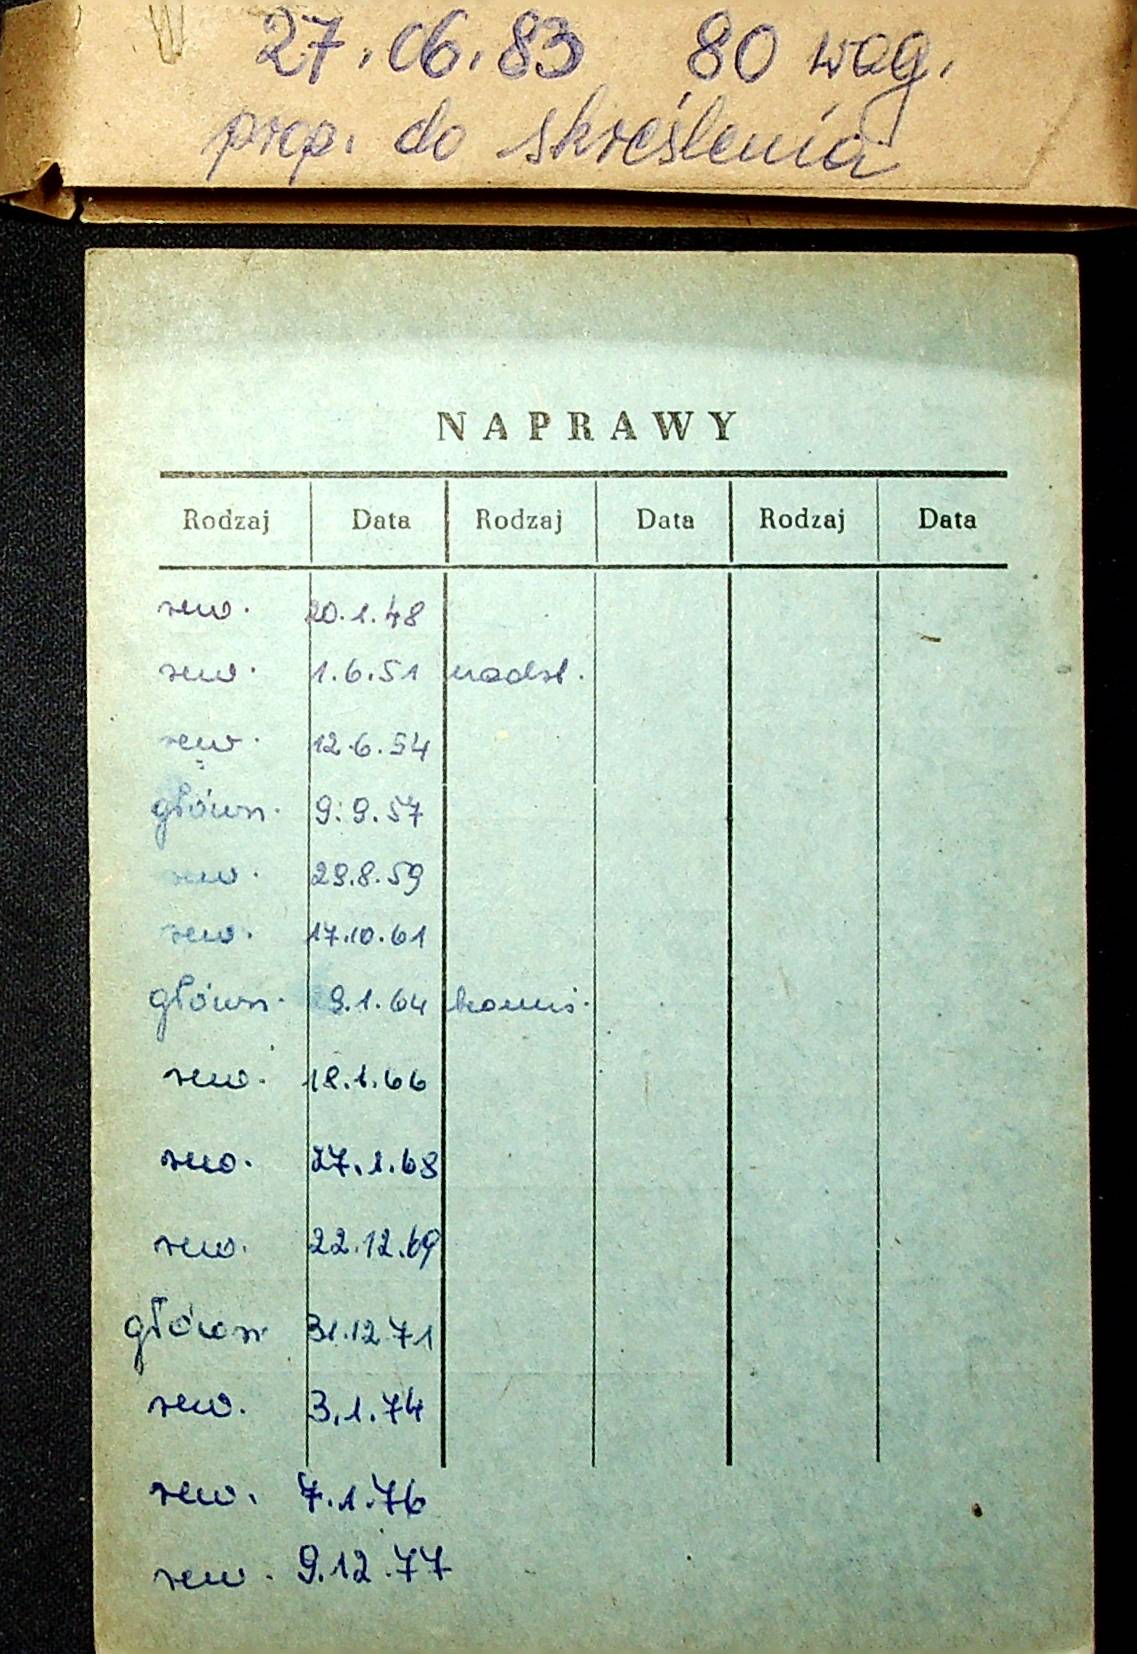 27.06.83 80 wag.
prop. do skreślenia
NAPRAWY
Rodzaj Data Rodzaj Data Rodzaj Data
rew. 20.1.48
rew. 1.6.51 nadst.
rew. 12.6.54
główn. 9.9.57
rew. 29.8.59
rew. 17.10.61
główn. 9.1.64 komis.
rew. 18.1.66
rew. 27.1.68
rew. 22.12.69
główn. 31.12.71
rew. 3.1.74
rew. 7.1.76
rew. 9.12.77